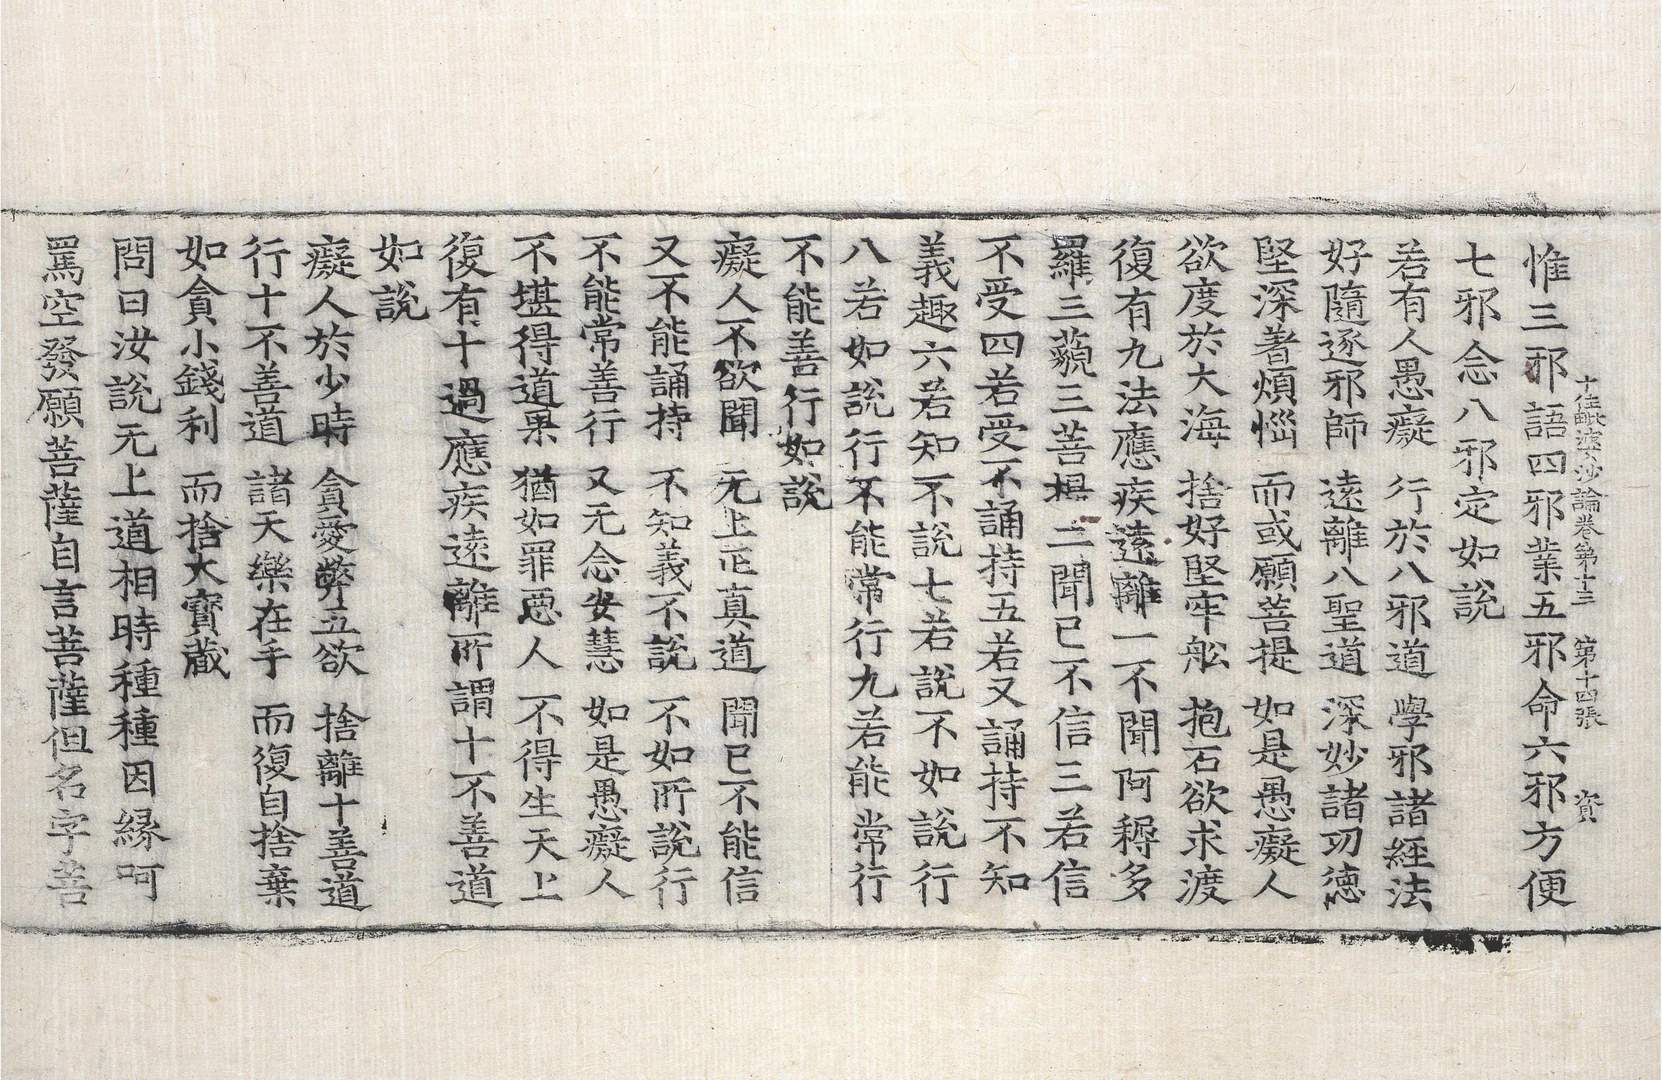 十住毗婆沙論卷第十三 第十四張 資
惟三邪語四邪業五邪命六邪方便
七邪念八邪定如說
若有人愚癡 行於八邪道 學邪諸經法
好隨逐邪師 遠離八聖道 深妙諸功德
堅深著煩惱 而或願菩提 如是愚癡人
欲度於大海 捨好堅牢舩 抱石欲求渡
復有九法應疾遠離一不聞阿耨多
羅三藐三菩提二聞已不信三若信
不受四若受不誦持五若又誦持不知
義趣六若知不說七若說不如說行
八若如說行不能常行九若能常行
不能善行如說
癡人不欲聞 无上正真道 聞已不能信
又不能誦持 不知義不說 不如所說行
不能常善行 又无念安慧 如是愚癡人
不堪得道果 猶如罪惡人 不得生天上
復有十過應疾遠離所謂十不善道
如說
癡人於少時 貪愛弊五欲 捨離十善道
行十不善道 諸天樂在手 而復自捨棄
如貪小錢利 而捨大寶藏
問曰汝說无上道相時種種因緣呵
罵空發願菩薩自言菩薩但名字菩